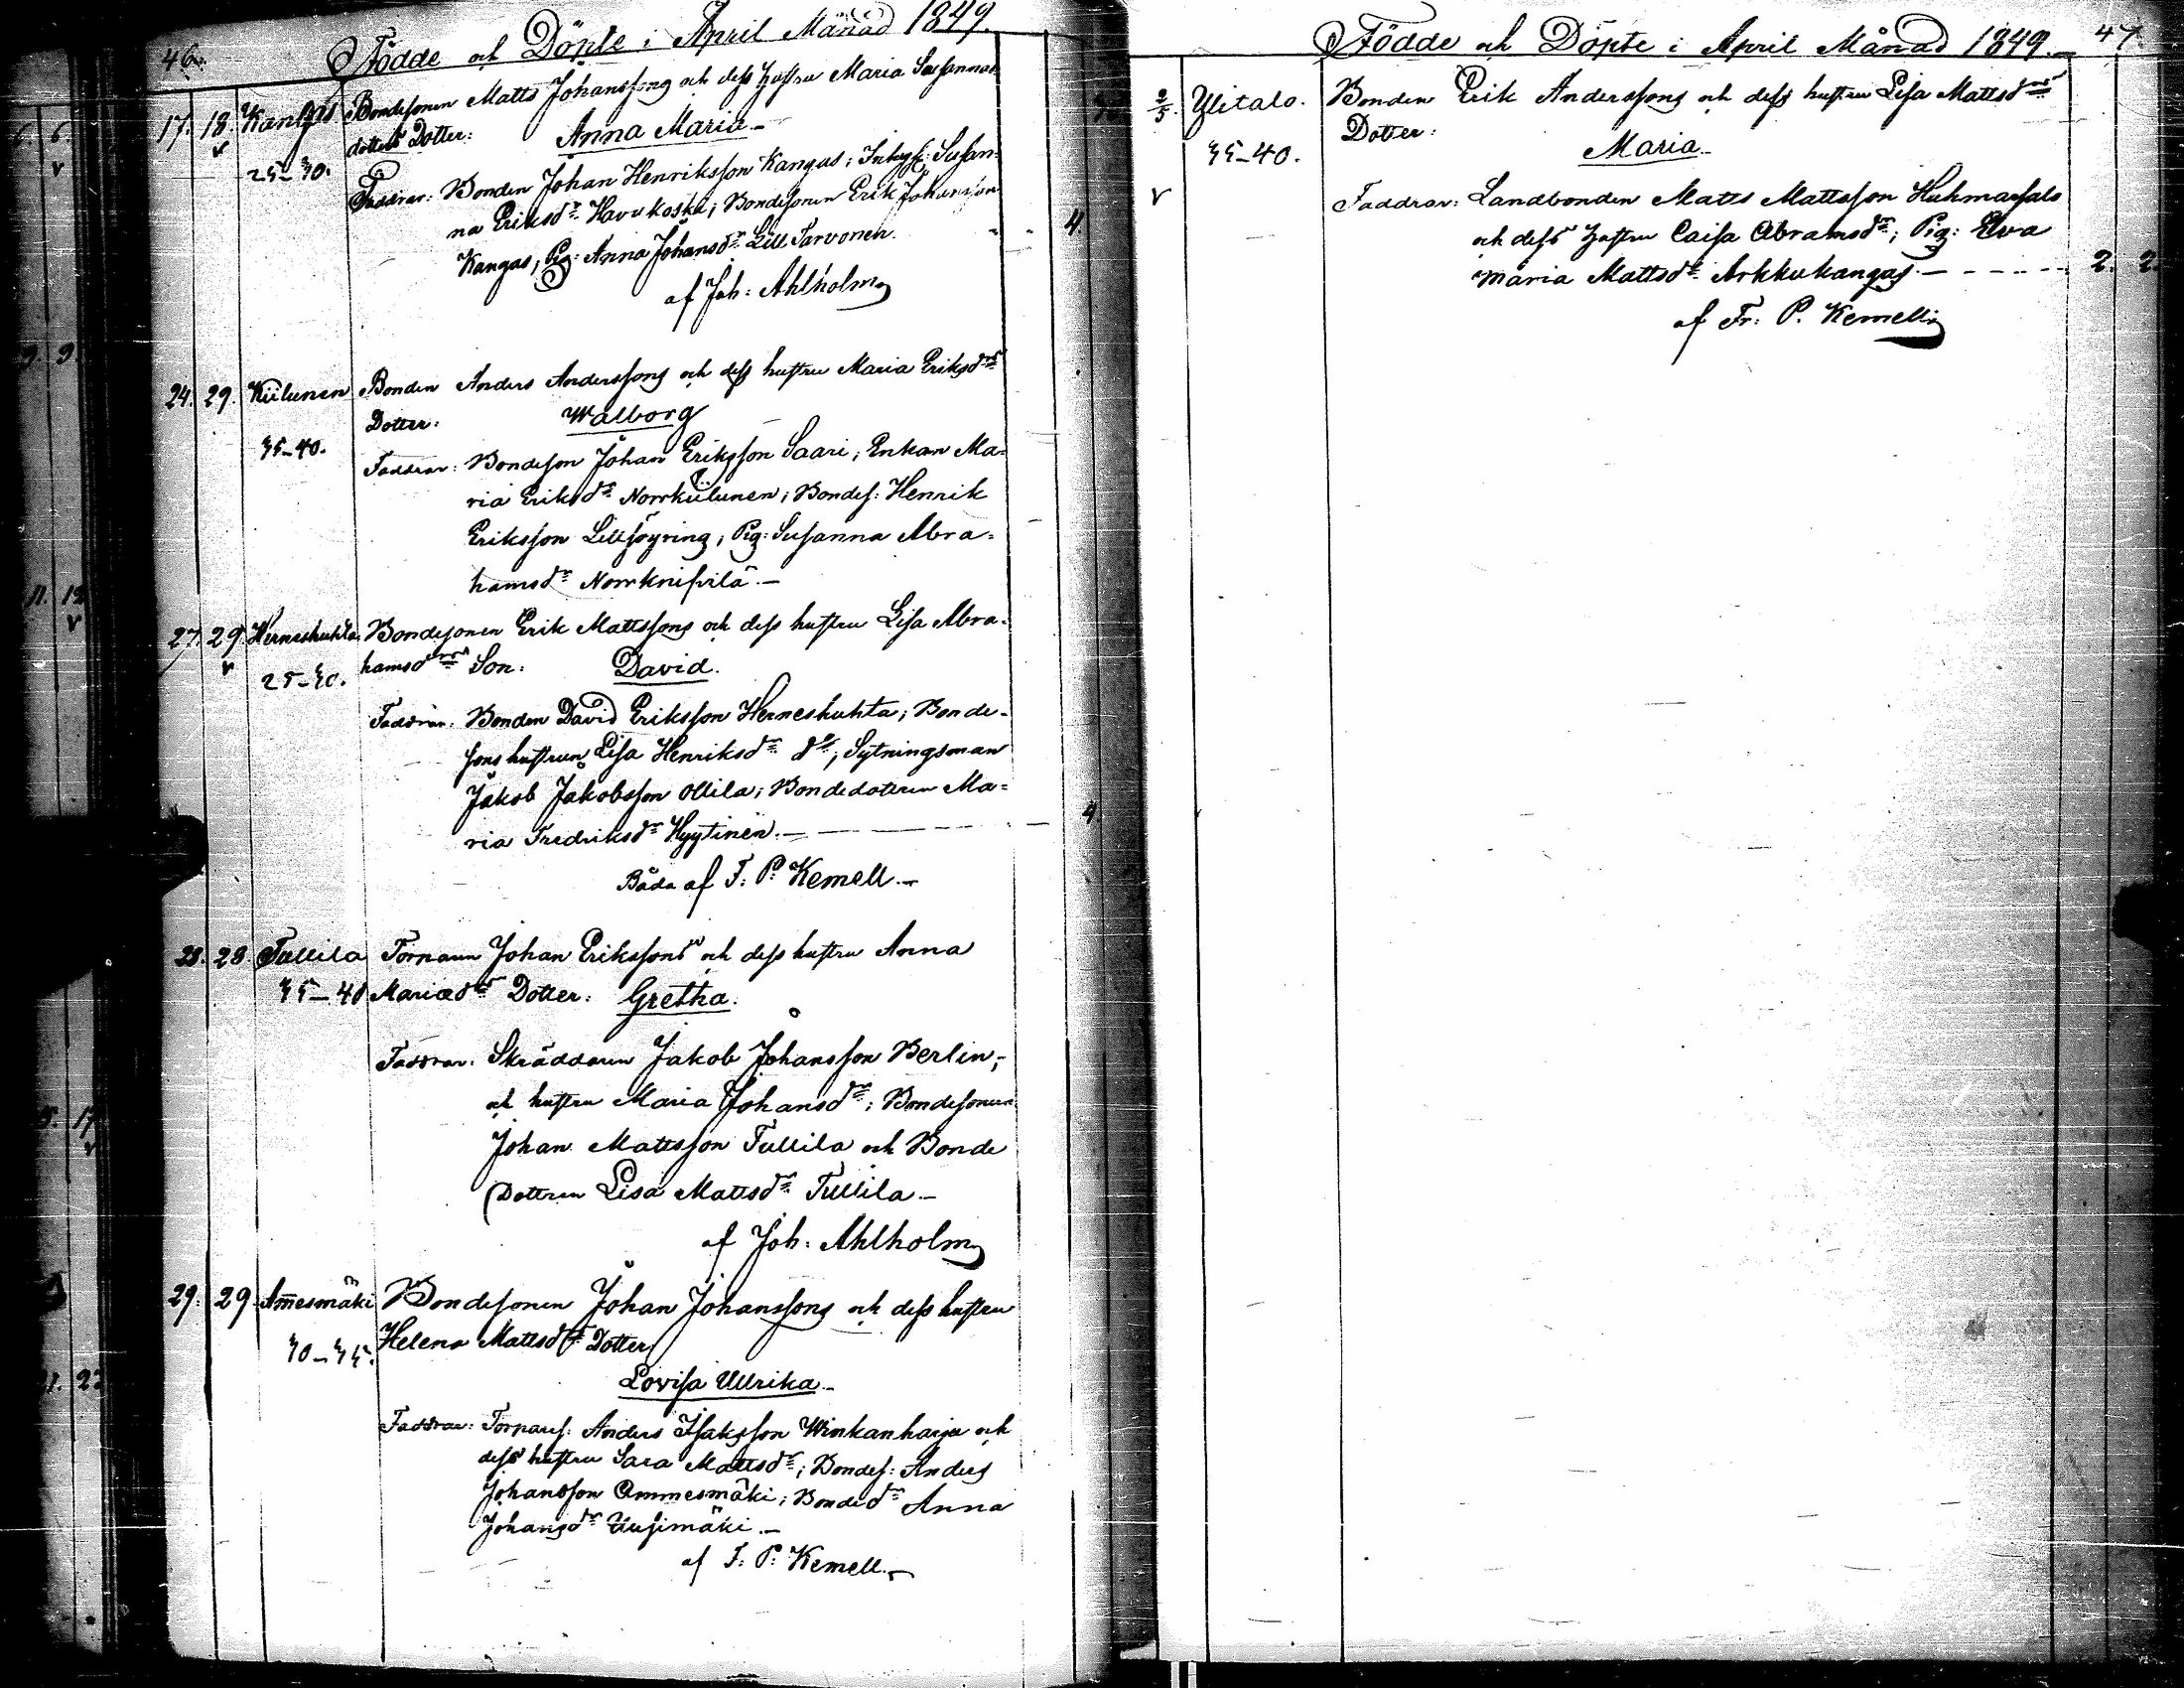 46.
Födde och Döpte i April Månad 1849.
17. 18. Kangas Bondesonen Matts Johanssons och dess hustru Maria Susannas
dotters Dotter: Anna Maria
25-30.
Faddrar: Bonden Johan Henriksson Kangas; Susan-
na Eriksdr Havukoski; Bondesonen Erik Johansson
Kangas; Pig: Anna Johansdr Lill Tarvonen.
4.
af Joh: Ahlholm
24. 29. Kiilunen Bonden Anders Anderssons och dess hustru Maria Eriksdrs
Dotter: Walborg
35-40.
Faddrar: Bondeson Johan Eriksson Saari; Enkan Ma-
ria Eriksdr Norrkiilunen; Bondes: Henrik
Eriksson Lillsöyring; Pig: Susanna Abra-
hamsdr Norrknifsilä.
27. 29. Herneshuhta Bondesonen Erik Mattssons och dess hustru Lisa Abra-
hamsdrs Son: David.
25-30.
Faddrar: Bonden David Eriksson Herneshuhta; Bonde-
sons hustrun Lisa Henriksdr do; Sytningsman
Jakob Jakobsson Ollila; Bondedottren Ma-
ria Fredriksdr Hyytinen. 4
Båda af F: P: Kemell.
28. 28. Tullila Torparen Johan Erikssons och dess hustru Anna
35-40 Mariædrs Dotter: Gretha.
Faddrar: Skräddaren Jakob Johansson Berlin;
och hustru Maria Johansdr; Bondesonen
Johan Mattsson Tullila och Bonde
Dottren Lisa Mattsdr Tullila
af Joh: Ahlholm
29. 29 Ammesmäki Bondesonen Johan Johanssons och dess hustru
Helena Mattsdrs Dotter
30-35.
Lovisa Ullrika
Faddrar: Torpares: Anders Isaksson Winkanharju och
dess hustru Sara Mattsdr; Bondes: Anders
Johansson Ammesmäki; Bondedr Anna
Johansdr Uusimäki.
af F: P: Kemell.
47
Födde och Döpte i April Månad 1849.
2/5. Ylitalo. Bonden Erik Anderssons och dess hustru Lisa Mattsdrs
Dotter:
35-40.
Maria
Faddrar: Landbonden Matts Mattsson Huhmarsalo
och dess hustru Caisa Abramsdr; Pig: Eva
Maria Mattsdr Arkkukangas. 2. 2.
af Fr: P. Kemell